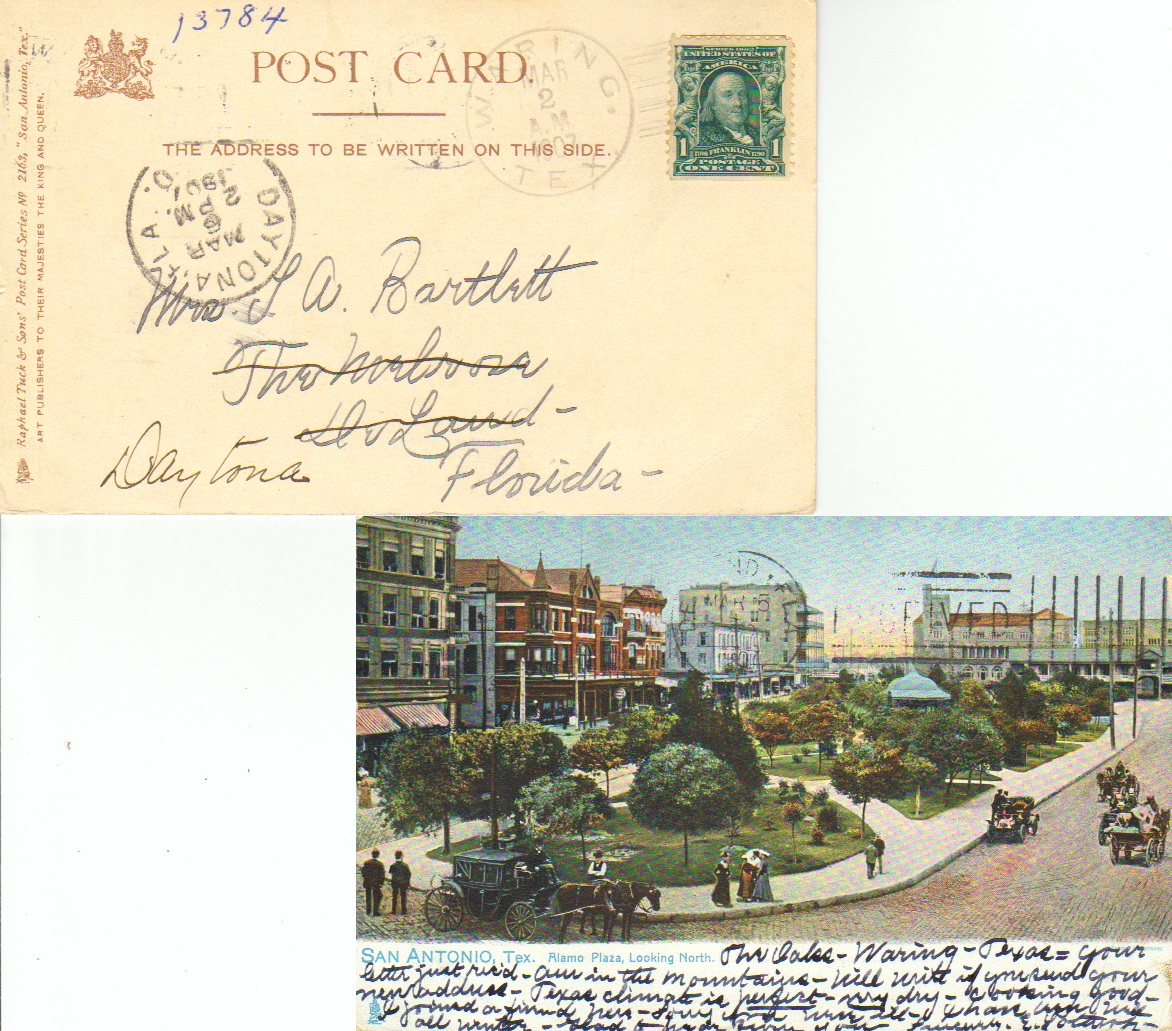 13784
POST CARD.
THE ADDRESS TO BE WRITTEN ON THIS SIDE.
Raphael Tuck & Sons' Post Card Series No 2163, "San Antonio, Tex."
ART PUBLISHERS TO THEIR MAJESTIES THE KING AND QUEEN.
WARING, TEX
MAR
2
A.M
1907
SERIES 1902
UNITED STATES OF
AMERICA
1 FRANKLIN 1
POSTAGE
ONE CENT
DAYTONA, FLA.
MAR
6
2 PM
190
Mrs. L A. Bartlett
The Melrose
De Land
Daytona
Florida
MAR 5
RECEIVED
SAN ANTONIO, Tex. Alamo Plaza, Looking North.
The Oaks - Waring - Texas = Your
letter just rec'd - Am in the mountains - Will write if you send your
new address - Texas climate is perfect - very dry - cooking good -
I found a friend here - I have
all winter - glad to hear from you